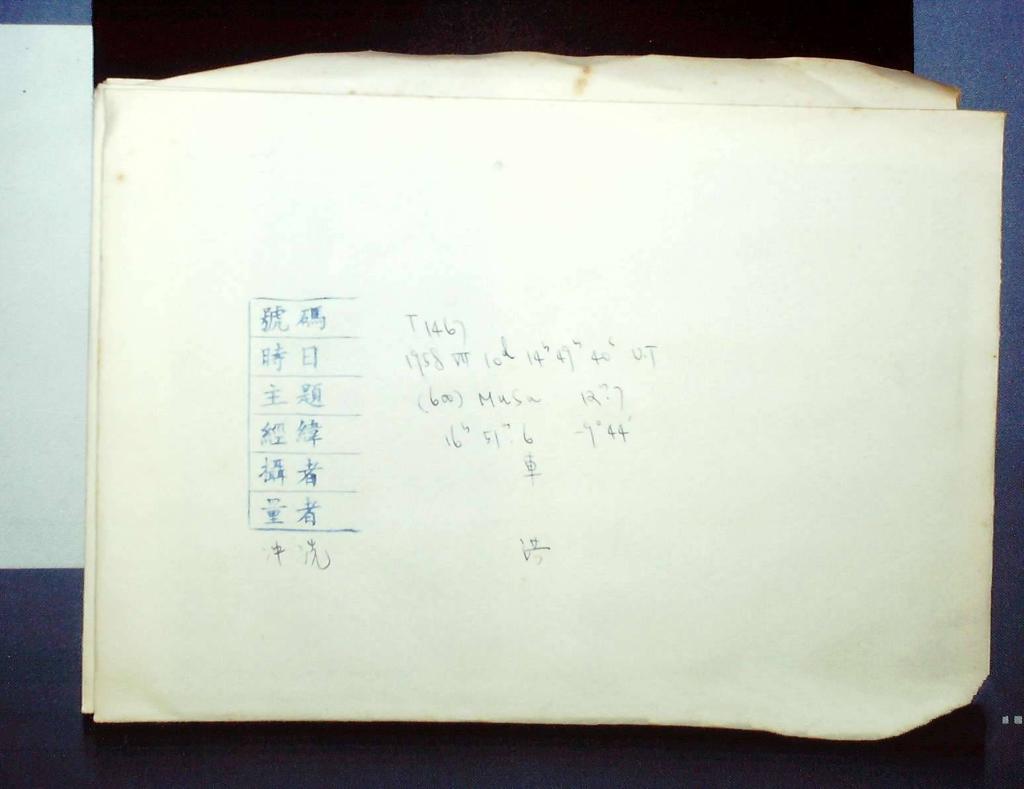 號碼 T1467
時日 1958 VII 10d 14h 47m 40s U.T
主題 (600) Musa 12m.7
經緯 16h 51m.6 -9°44'
攝者 車
量者
冲洗 洪